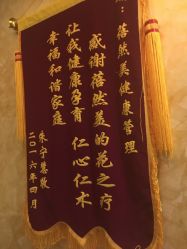 ：蓓然美健康管理
感谢蓓然美的花之疗
让我健康孕育 仁心仁术
幸福和谐家庭
朱宁慧敬
二〇一六年四月